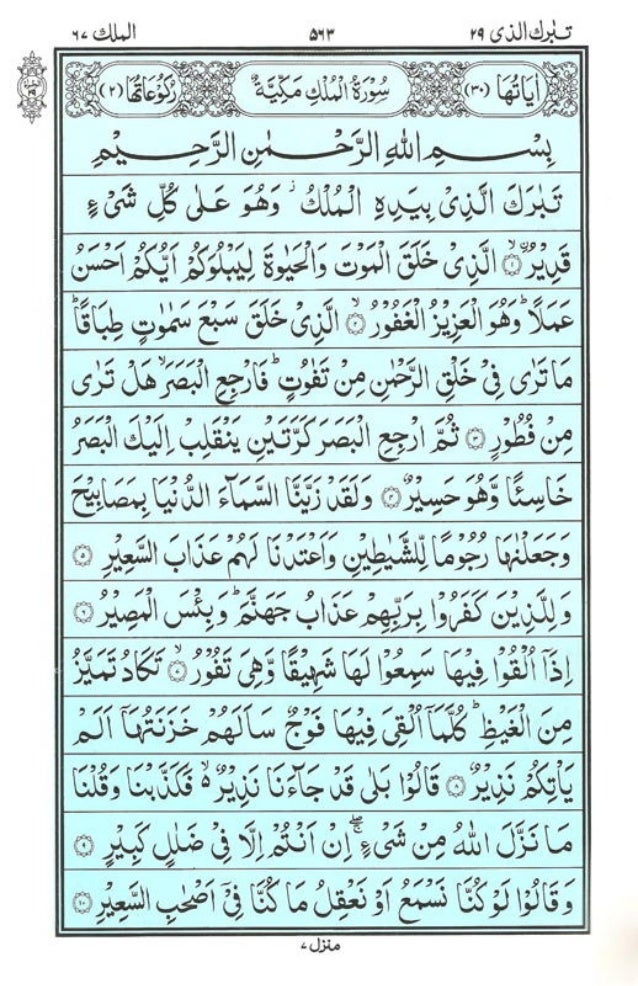 تبٰرك الذی ۲۹ ۵۶۳ الملك ۶۷
اٰيَاتُهَا (۳۰) سُوْرَةُ الْمُلْكِ مَكِّيَّةٌ رُكُوْعَاتُهَا (۲)
بِسْمِ اللهِ الرَّحْمٰنِ الرَّحِيْمِ
تَبٰرَكَ الَّذِىْ بِيَدِهِ الْمُلْكُ ز وَهُوَ عَلٰى كُلِّ شَىْءٍ
قَدِيْرُۨ ۙ ۝۱ الَّذِىْ خَلَقَ الْمَوْتَ وَالْحَيٰوةَ لِيَبْلُوَكُمْ اَيُّكُمْ اَحْسَنُ
عَمَلًا ؕ وَهُوَ الْعَزِيْزُ الْغَفُوْرُ ۙ ۝۲ الَّذِىْ خَلَقَ سَبْعَ سَمٰوٰتٍ طِبَاقًا ؕ
مَا تَرٰى فِىْ خَلْقِ الرَّحْمٰنِ مِنْ تَفٰوُتٍ ؕ فَارْجِعِ الْبَصَرَ ۙ هَلْ تَرٰى
مِنْ فُطُوْرٍ ۝۳ ثُمَّ ارْجِعِ الْبَصَرَ كَرَّتَيْنِ يَنْقَلِبْ اِلَيْكَ الْبَصَرُ
خَاسِئًا وَّهُوَ حَسِيْرٌ ۝۴ وَلَقَدْ زَيَّنَّا السَّمَآءَ الدُّنْيَا بِمَصَابِيْحَ
وَجَعَلْنٰهَا رُجُوْمًا لِّلشَّيٰطِيْنِ وَاَعْتَدْنَا لَهُمْ عَذَابَ السَّعِيْرِ ۝۵
وَلِلَّذِيْنَ كَفَرُوْا بِرَبِّهِمْ عَذَابُ جَهَنَّمَ ؕ وَبِئْسَ الْمَصِيْرُ ۝۶
اِذَآ اُلْقُوْا فِيْهَا سَمِعُوْا لَهَا شَهِيْقًا وَّهِىَ تَفُوْرُ ۙ ۝۷ تَكَادُ تَمَيَّزُ
مِنَ الْغَيْظِ ؕ كُلَّمَآ اُلْقِىَ فِيْهَا فَوْجٌ سَاَلَهُمْ خَزَنَتُهَآ اَلَمْ
يَاْتِكُمْ نَذِيْرٌ ۝۸ قَالُوْا بَلٰى قَدْ جَآءَنَا نَذِيْرٌ ۙ۬ فَكَذَّبْنَا وَقُلْنَا
مَا نَزَّلَ اللهُ مِنْ شَىْءٍ ۖۚ اِنْ اَنْتُمْ اِلَّا فِىْ ضَلٰلٍ كَبِيْرٍ ۝۹
وَقَالُوْا لَوْ كُنَّا نَسْمَعُ اَوْ نَعْقِلُ مَا كُنَّا فِىْٓ اَصْحٰبِ السَّعِيْرِ ۝۱۰
منزل ۷